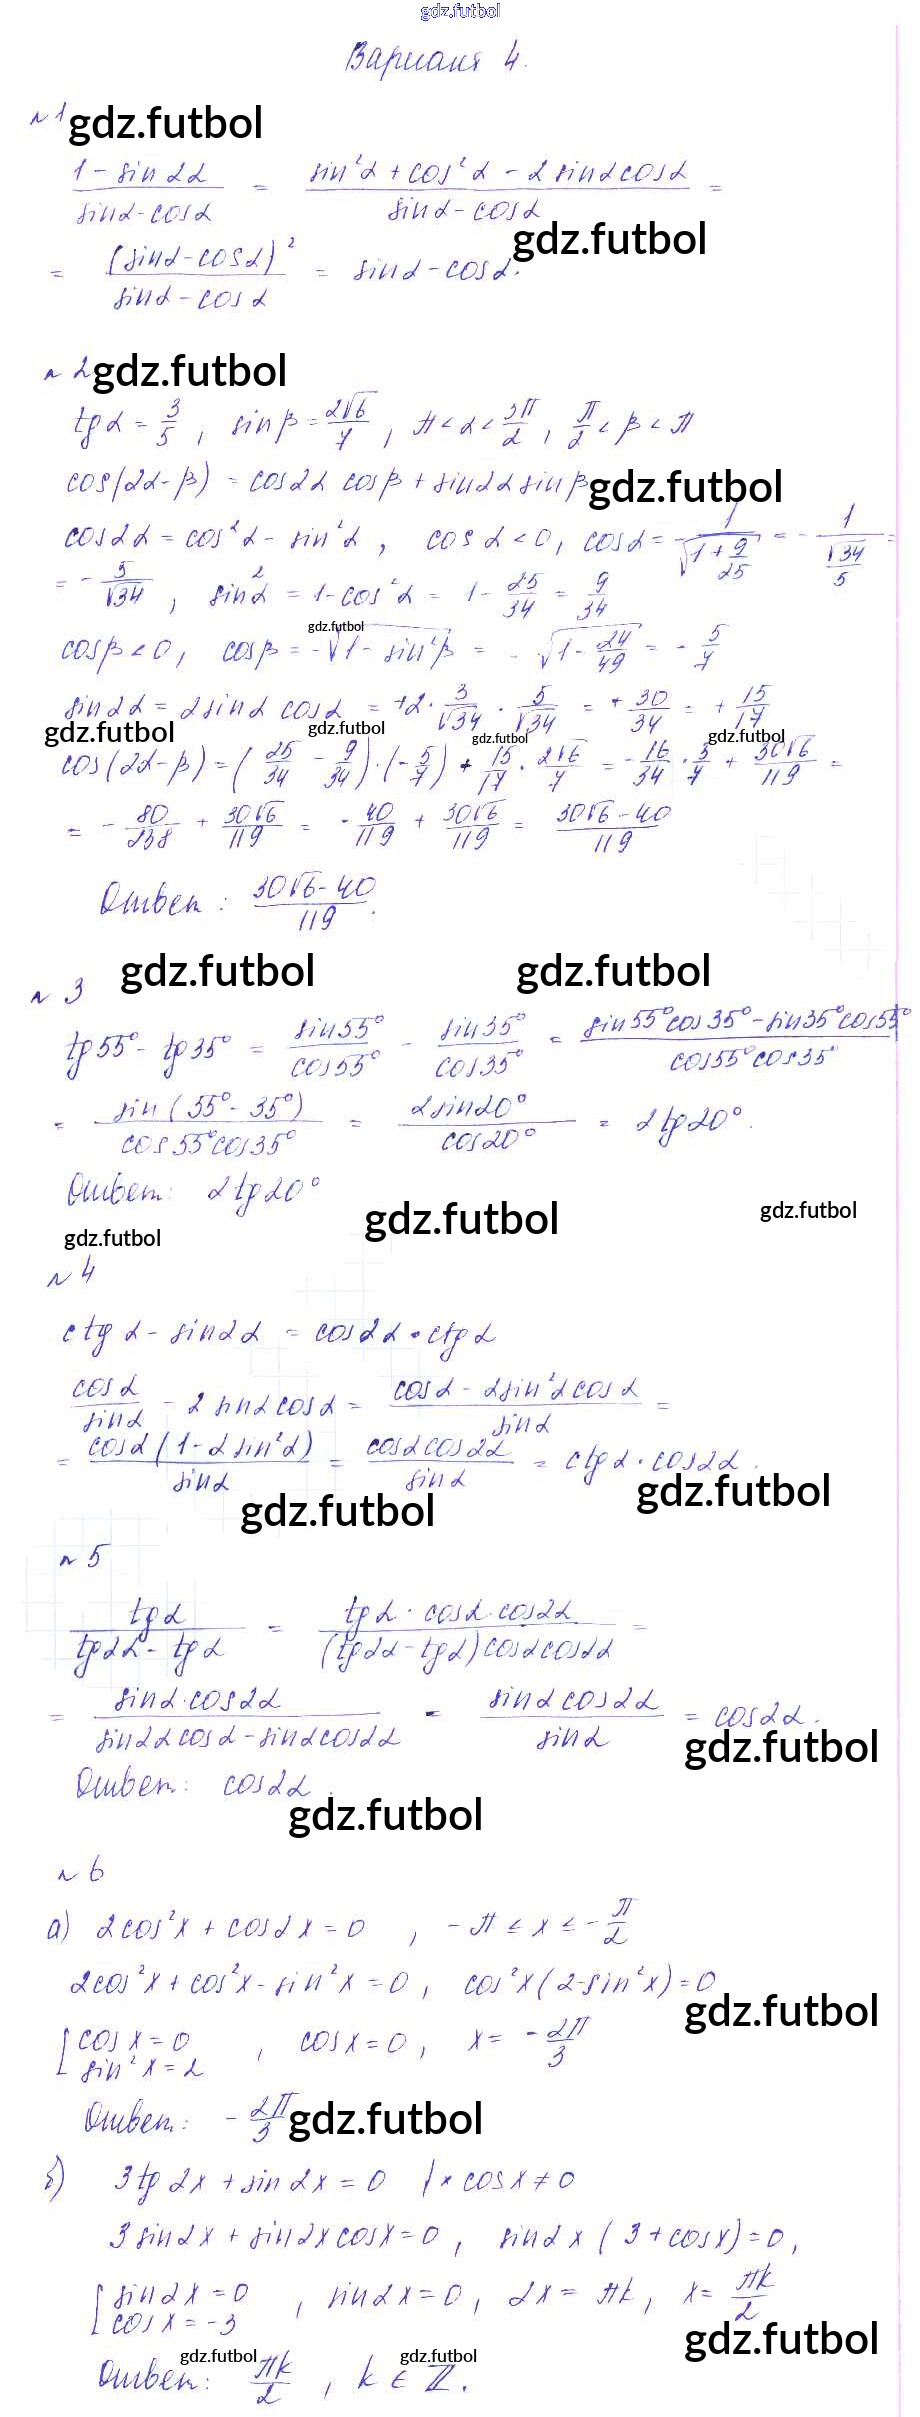 gdz.futbol
Вариант 4.
№1 gdz.futbol
(1 - sin 2α)/(sinα - cosα) = (sin²α + cos²α - 2 sinα cosα)/(sinα - cosα) =
gdz.futbol
= (sinα - cosα)²/(sinα - cosα) = sinα - cosα.
№ 2 gdz.futbol
tgα = 3/5, sinβ = 2√6/7, π < α < 3π/2, π/2 < β < π
cos(2α - β) = cos2α cosβ + sin2α sinβ gdz.futbol
cos2α = cos²α - sin²α, cosα < 0, cosα = -1/√(1 + 9/25) = -1/(√34/5) =
= -5/√34, sin²α = 1 - cos²α = 1 - 25/34 = 9/34
gdz.futbol
cosβ < 0, cosβ = -√(1 - sin²β) = -√(1 - 24/49) = -5/7
sin2α = 2 sinα cosα = +2 · 3/√34 · 5/√34 = +30/34 = +15/17
gdz.futbol gdz.futbol gdz.futbol gdz.futbol
cos(2α - β) = (25/34 - 9/34) · (-5/7) + 15/17 · 2√6/7 = -16/34 · 5/7 + 30√6/119 =
= -80/238 + 30√6/119 = -40/119 + 30√6/119 = (30√6 - 40)/119
Ответ: (30√6 - 40)/119.
gdz.futbol gdz.futbol
№ 3
tg55° - tg35° = sin55°/cos55° - sin35°/cos35° = (sin55°cos35° - sin35°cos55°)/(cos55°cos35°)
= sin(55° - 35°)/(cos55°cos35°) = 2sin20°/cos20° = 2tg20°.
Ответ: 2tg20°
gdz.futbol gdz.futbol gdz.futbol
№ 4
ctgα - sin2α = cos2α · ctgα
cosα/sinα - 2 sinα cosα = (cosα - 2sin²α cosα)/sinα =
= cosα(1 - 2sin²α)/sinα = cosα cos2α/sinα = ctgα · cos2α.
gdz.futbol gdz.futbol
№ 5
tgα/(tg2α - tgα) = (tgα · cosα · cos2α)/((tg2α - tgα)cosα cos2α) =
= (sinα · cos2α)/(sin2α cosα - sinα cos2α) = (sinα cos2α)/sinα = cos2α.
gdz.futbol
Ответ: cos2α.
gdz.futbol
№ 6
а) 2cos²x + cos2x = 0, -π ≤ x ≤ -π/2
2cos²x + cos²x - sin²x = 0, cos²x(2 - sin²x) = 0
gdz.futbol
[cos x = 0, cos x = 0, x = -2π/3
sin²x = 2
Ответ: -2π/3 gdz.futbol
б) 3tg2x + sin2x = 0 |× cosx ≠ 0
3sin2x + sin2x cosx = 0, sin2x(3 + cosx) = 0,
[sin2x = 0, sin2x = 0, 2x = πk, x = πk/2
cosx = -3
gdz.futbol
gdz.futbol gdz.futbol
Ответ: πk/2, k ∈ Z.